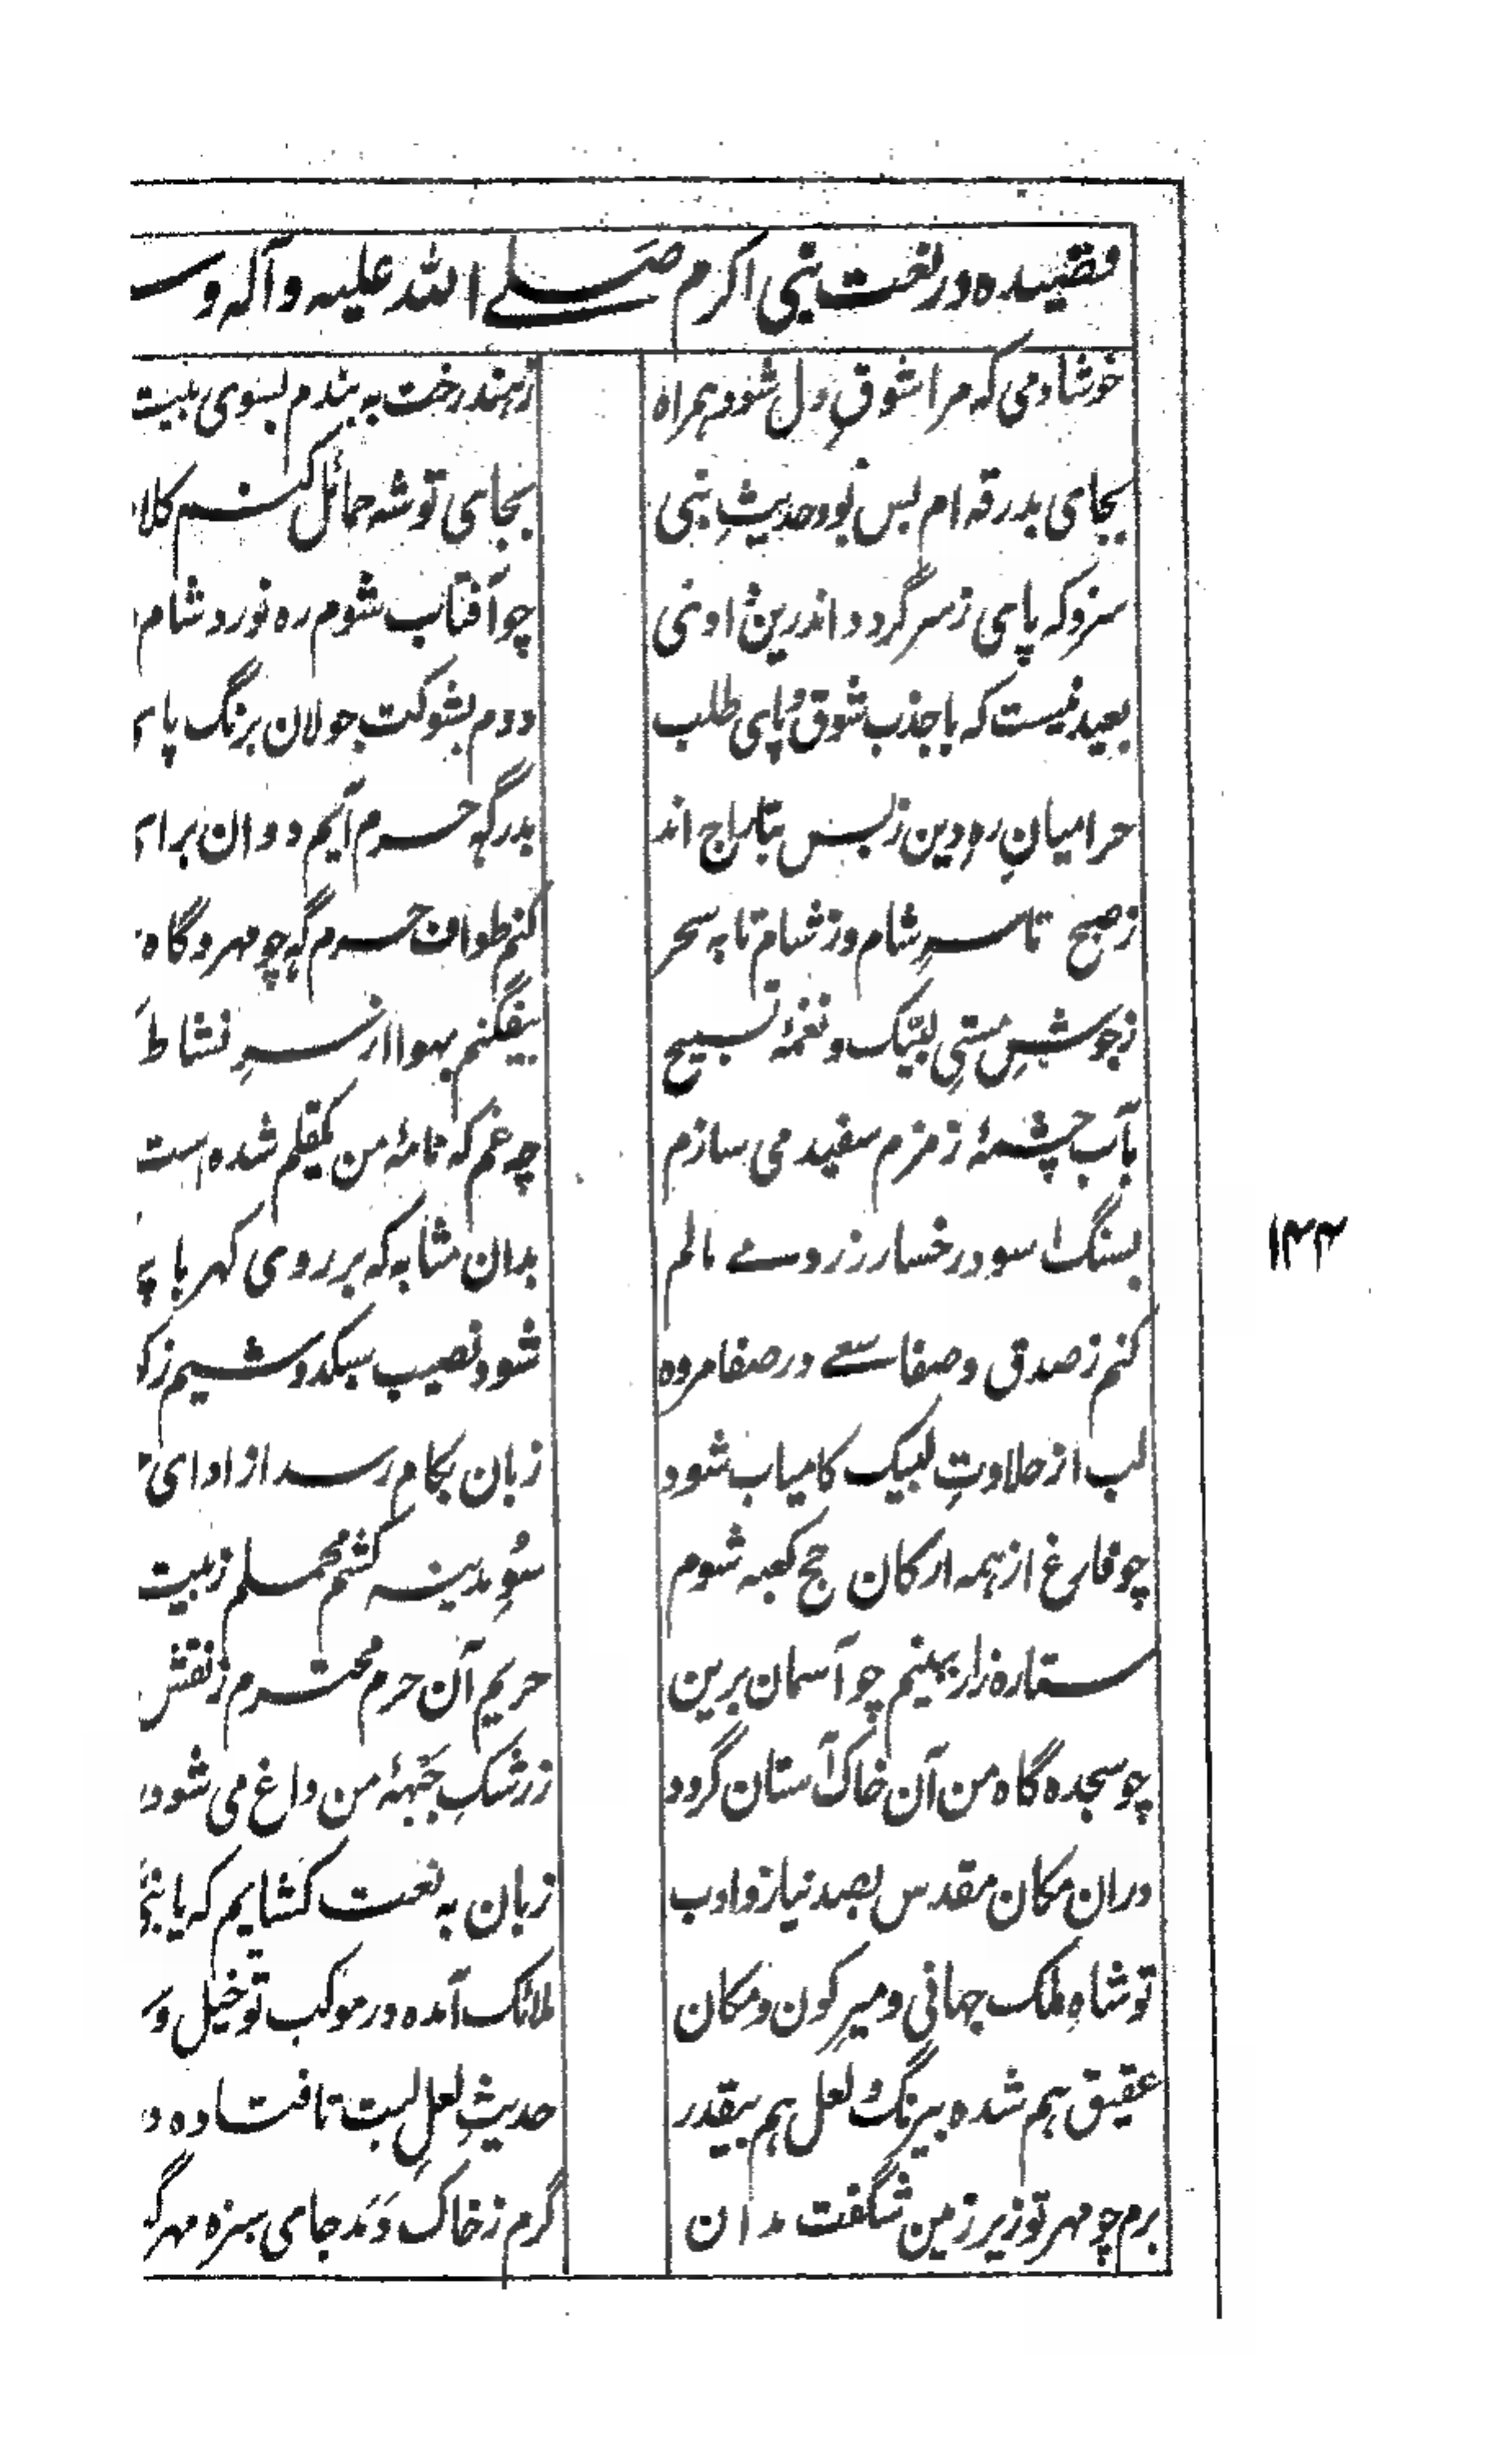 قصیده در نعت نبی اکرم صلے الله علیه وآله وس
خوشا دمی که مرا شوقِ دل شود همراه
ز هند رخت به بندم بسوی بیت
بجای بدرقه ام بس بُود حدیثِ نبی
بجای توشه حمائل کنم کلا
سزد که پای ز سر گردد اندرین وادی
چو آفتاب شوم ره نورد شام
بعید نیست که با جذب شوق و پای طلب
دوم بشوکت جولان برنگ پا
حرامیانِ رهِ دین ز بس بتاراج اند
بدرگهِ حرم آیم دوان برا
ز صبح تا سرِ شام و ز شام تا به سحر
کنم طواف حرم گه چو مهر و گاه
ز جوششِ مستیِ لبّیک و نغمهٔ تسبیح
بیفگنم بهوا از سرِ نشاط
بآب چشمهٔ زمزم سفید می سازم
چه غم که نامهٔ من یکقلم شده است
بسنگ اسود رخسار زرد مے مالم
بدان مثابه که بر روی کهربا
کنم ز صدق و صفا سعے در صفا مروه
شود نصیب سبکدوشیم ز
لب از حلاوتِ لبیک کامیاب شود
زبان بکام رسد از ادای
چو فارغ از همه ارکان حج کعبه شوم
سُوِ مدینه کشم محملم ز بیت
ستاره زار ببینم چو آسمان برین
حریم آن حرم محترم ز نقش
چو سجده گاه من آن خاک آستان گردد
ز رشکِ جَبْههٔ من داغ می شود
دران مکان مقدس بصد نیاز و ادب
زبان به نعت کشایم که یا
تو شاهِ ملک جهانی و میرِ کون و مکان
ملائک آمده در موکب تو خیل و
عقیق هم شده بیرنگ و لعل هم بیقدر
حدیثِ لعلِ لبت تا فتاده
برم چو مهر تو زیر زمین شگفت مدان
گرم ز خاک دَمَد جای سبزه مهر
۱۳۳